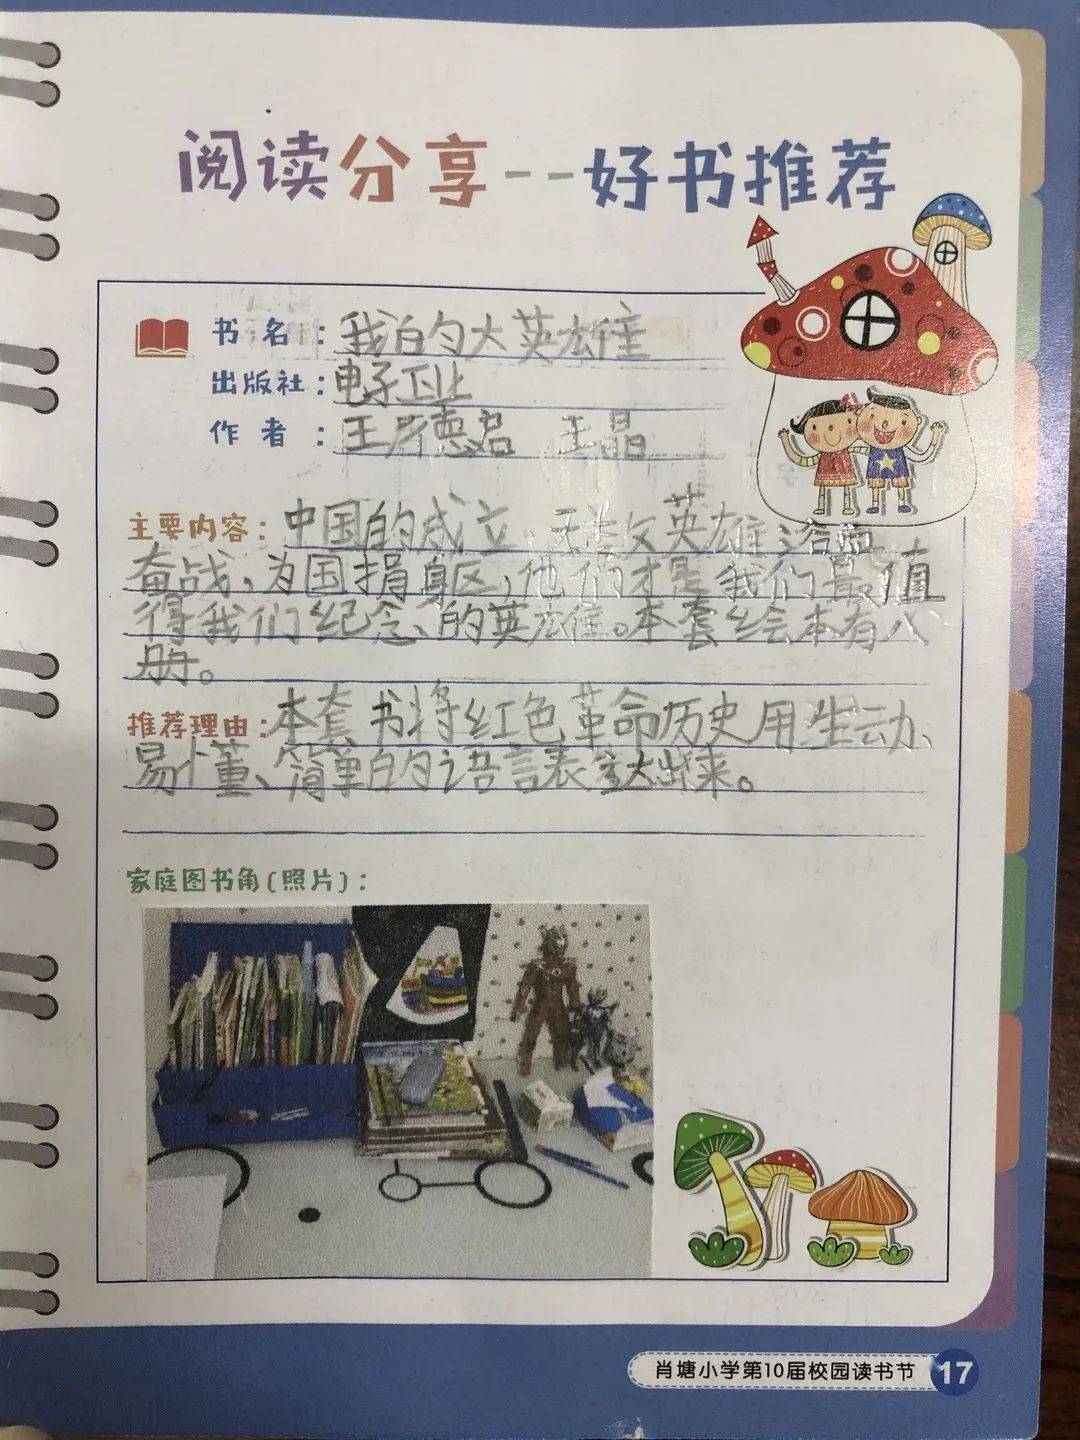 阅读分享--好书推荐
书名：我的大英雄
出版社：电子工业
作者：王 德君 王晶
主要内容：中国的成立，无数英雄浴血
奋战、为国捐身区，他们才是我们最值
得我们纪念的英雄。本套绘本有八
册。
推荐理由：本套书将红色革命历史用生动、
易懂、简单的语言表达出来。
家庭图书角（照片）：
肖塘小学第10届校园读书节 17